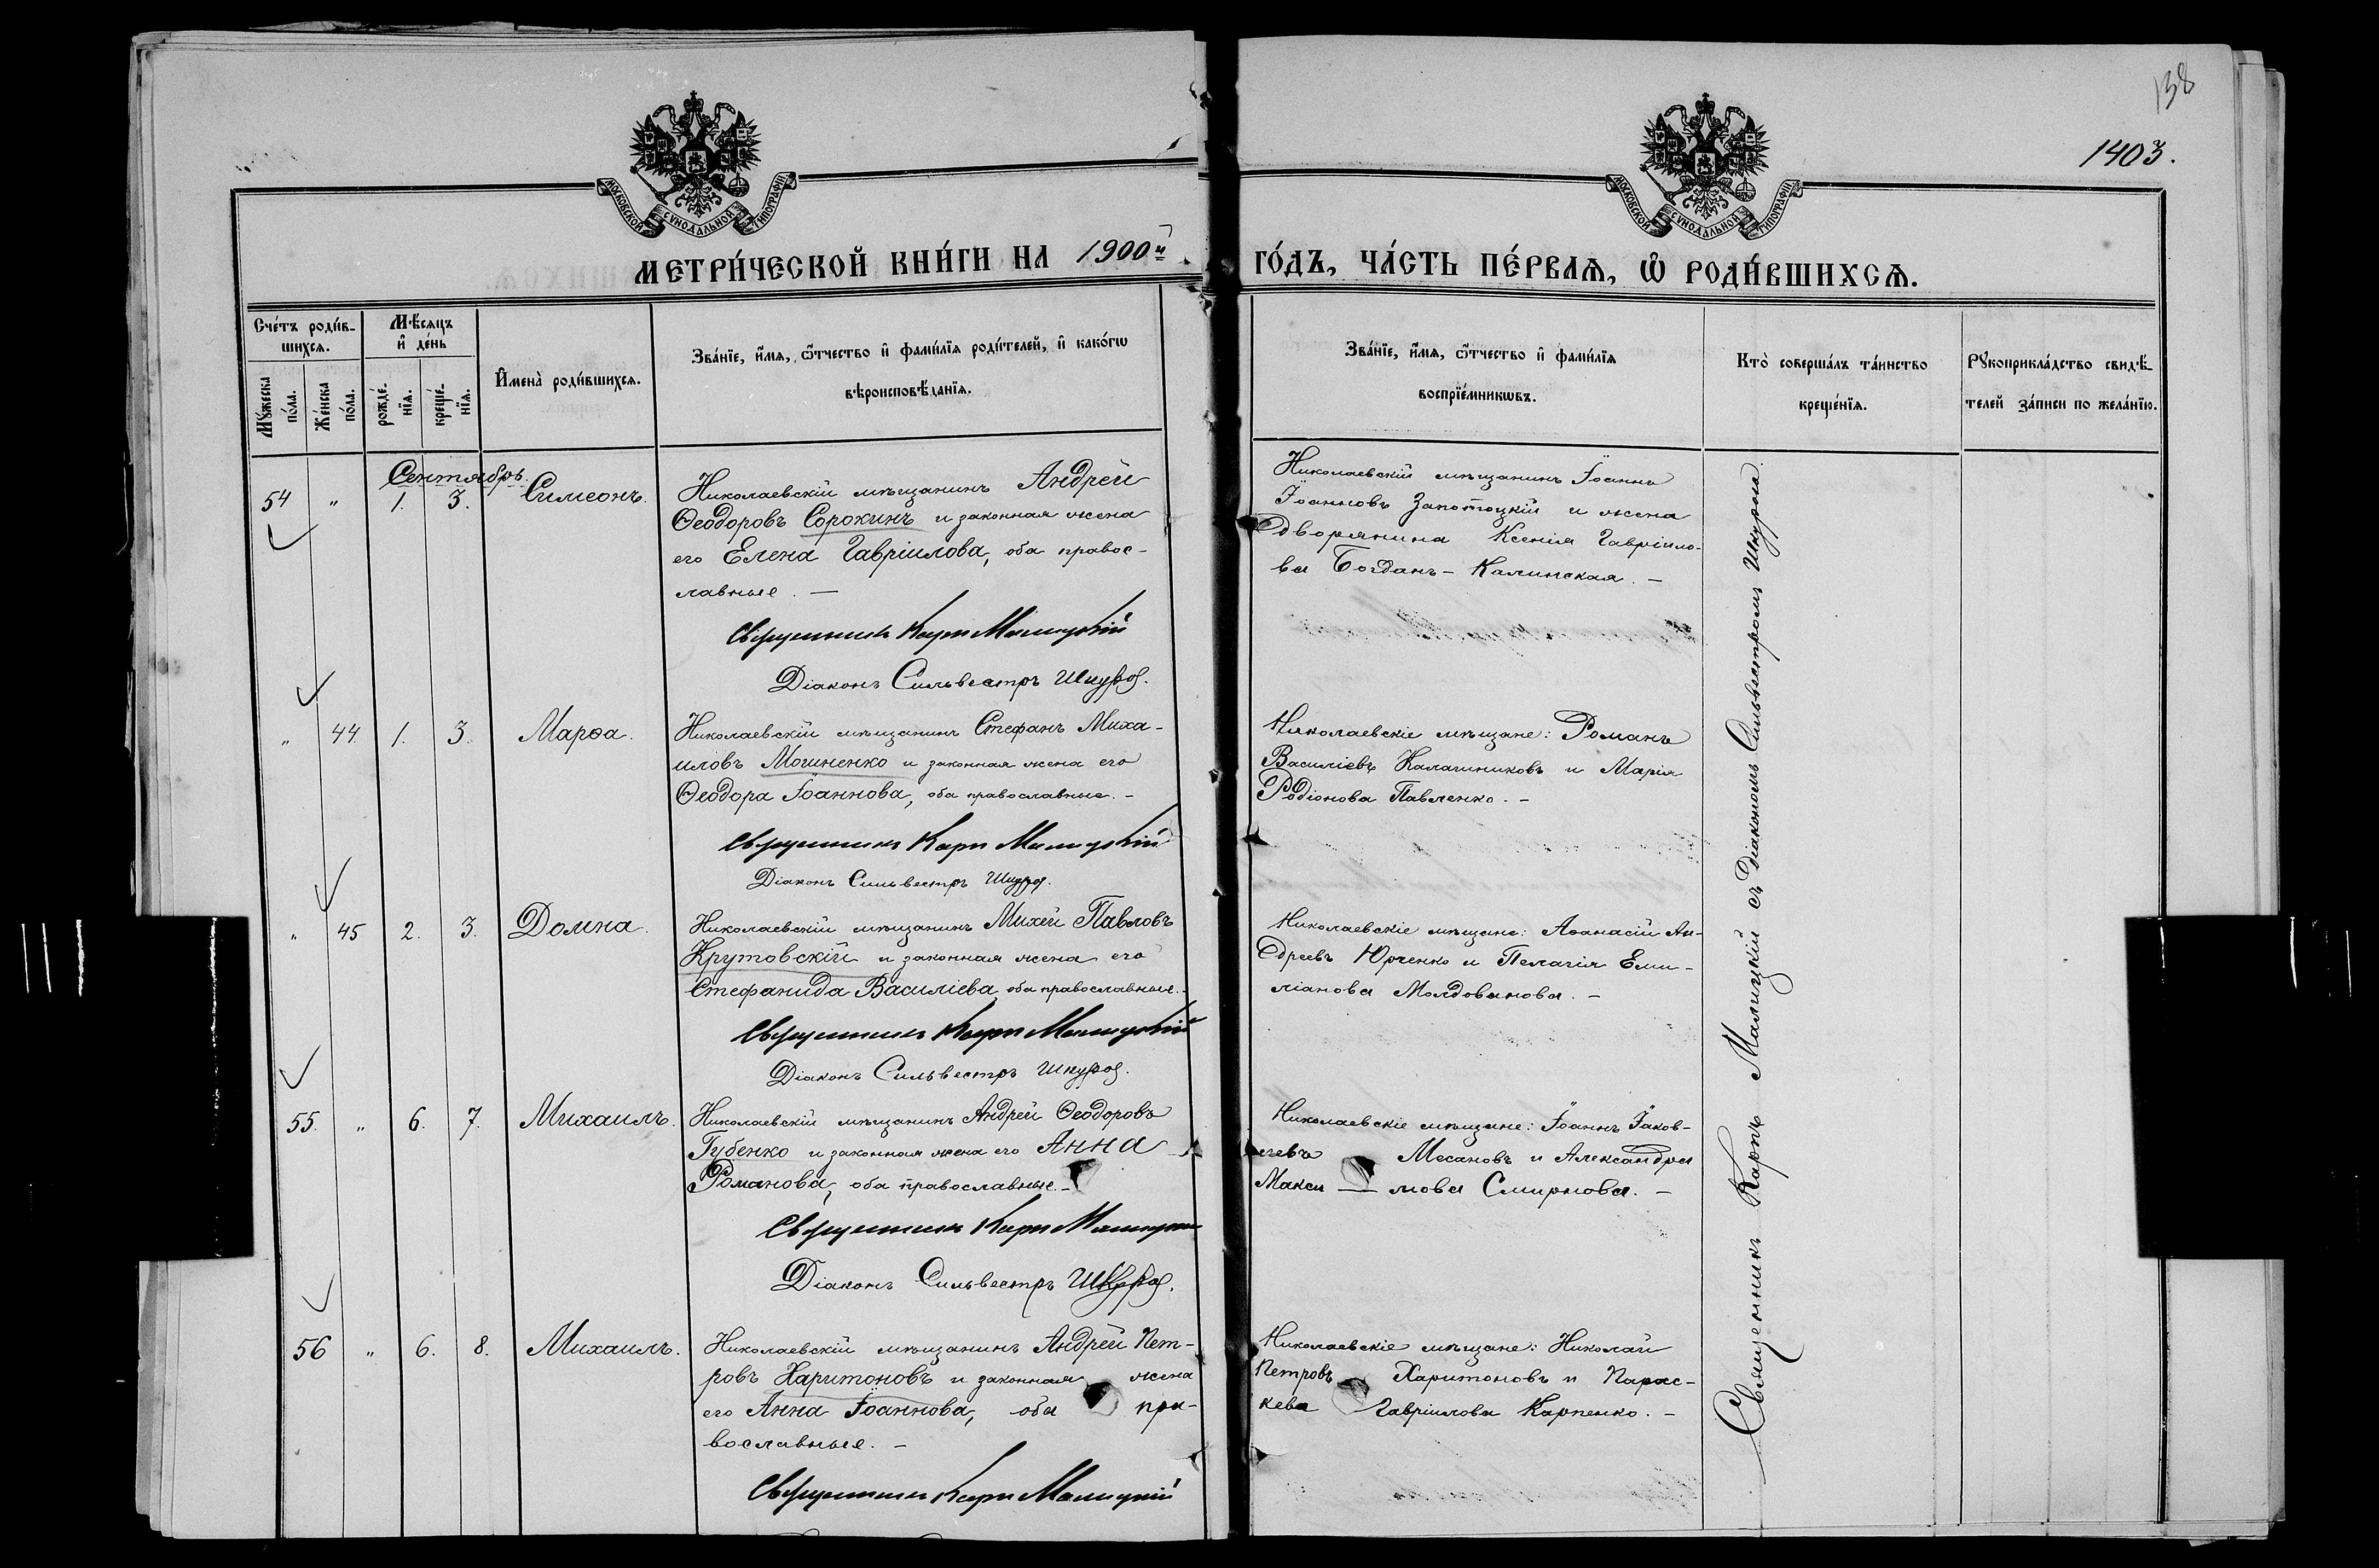 138
1403.
МОСКОВСКОЙ СУНОДАЛЬНОЙ ТИПОГРАФІИ
МОСКОВСКОЙ СУНОДАЛЬНОЙ ТИПОГРАФІИ
МЕТРИ́ЧЕСКОЙ КНИ́ГИ НА 1900й
ГО́ДЪ, ЧА́СТЬ ПЕ́РВАѦ, Ѽ РОДИ́ВШИХСѦ.
Сче́тъ роди́в-
шихсѧ.
Мѣ́сѧцъ
и҆ де́нь
Мꙋ́жеска
по́ла.
Же́нска
по́ла.
рожде́-
нїѧ.
креще́-
нїѧ.
И҆мена̀ роди́вшихсѧ.
Зва́нїе, и҆́мѧ, ѻ҆́тчество и҆ фами́лїѧ роди́телей, и҆ како́гѡ
вѣроисповѣ́данїѧ.
Зва́нїе, и҆́мѧ, ѻ҆́тчество и҆ фами́лїѧ
воспрїе́мникѡвъ.
Кто̀ соверша́лъ та́инство
креще́нїѧ.
Рꙋкоприкла́дство свидѣ́-
телей за́писи по жела́нїю.
Сентябрь.
54 " 1. 3. Симеонъ.
Николаевскій мѣщанинъ Андрей
Ѳеодоровъ Сорокинъ и законная жена
его Елена Гавріилова, оба правос-
лавные. —
Священникъ Карпъ Малицкій
Діаконъ Сильвестръ Шкура.
Николаевскій мѣщанинъ Іоаннъ
Іоанновъ Запотоцкій и жена
дворянина Ксенія Гавріило-
ва Богданъ - Калинская. —
" 44 1. 3. Марѳа.
Николаевскій мѣщанинъ Стефанъ Миха-
иловъ Могиненко и законная жена его
Ѳеодора Іоаннова, оба православные. -
Священникъ Карпъ Малицкій
Діаконъ Сильвестръ Шкура.
Николаевскіе мѣщане: Романъ
Василіевъ Калачниковъ и Марія
Родіонова Павленко. —
" 45 2. 3. Домна.
Николаевскій мѣщанинъ Михей Павловъ
Крутовскій и законная жена его
Стефанида Василіева, оба православные. -
Священникъ Карпъ Малицкій
Діаконъ Сильвестръ Шкура.
Николаевскіе мѣщане: Аѳанасій Ан-
дреевъ Юрченко и Пелагія Еми-
ліанова Молдованова. —
55. " 6. 7. Михаилъ.
Николаевскій мѣщанинъ Андрей Ѳеодоровъ
Губенко и законная жена его Анна
Романова, оба православные. -
Священникъ Карпъ Малицкій
Діаконъ Сильвестръ Шкура.
Николаевскіе мѣщане: Іоаннъ Іаков-
левъ Месановъ и Александра
Макси — мова Смирнова. —
56 " 6. 8. Михаилъ.
Николаевскій мѣщанинъ Андрей Пет-
ровъ Харитоновъ и законная жена
его Анна Іоаннова, оба пра-
вославные. —
Священникъ Карпъ Малицкій
Николаевскіе мѣщане: Николай
Петровъ Харитоновъ и Парас-
кева Гавріилова Карпенко. —
Священникъ Карпъ Малицкій съ діакономъ Сильвестромъ Шкурою.